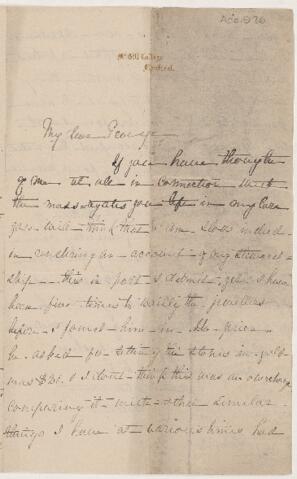 McGill College
Montreal.
My dear George
If you have thought
of me at all in connection with
the moss-agates you left in my care
you will think that I am slow indeed
in rendering an account of my steward
ship - this in part I admit - yet I have
been five times to the jewellers
before I found him in - the price
he asked for setting the stones in gold
was I don't think this was an overcharge
comparing it with other similar
things I have at various times had